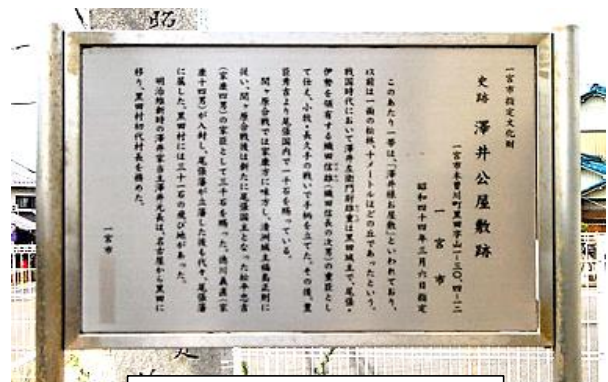 昭
一宮市指定文化財
史跡 澤井公屋敷跡
一宮市木曽川町黒田字山一-三〇、四-一二
一宮市
昭和四十四年三月六日指定
このあたり一帯は、「澤井様お屋敷」といわれており、
以前は一面の松林、十メートルほどの丘であったという。
戦国時代において澤井左衛門尉雄重は黒田城主で、尾張・
伊勢を領有する織田信雄(織田信長の次男)の重臣とし
て仕え、小牧・長久手の戦いで手柄を立てた。その後、豊
臣秀吉より尾張国内で一千石を賜っている。
関ヶ原合戦では家康方に味方し、清洲城主福島正則に
従い、関ヶ原合戦後は新たに尾張国主となった松平忠吉
(家康四男)の家臣として三千石を賜った。徳川義直(家
康十四男)が入封し、尾張藩が立藩した後も代々、尾張藩
に属した。黒田村には三十一石の飛び地があった。
明治維新時の澤井家当主澤井元長は、名古屋から黒田に
移り、黒田村初代村長を務めた。
一宮市